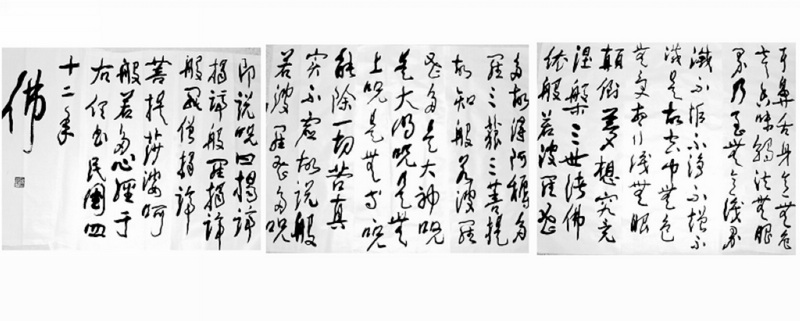 耳鼻舌身意無色
聲香味觸法無眼
界乃至無意識界
滅不垢不淨不增不
減是故空中無色
無受想行識無眼
顛倒夢想究竟
涅槃三世諸佛
依般若波羅蜜
多故得阿耨多
羅三藐三菩提
故知般若波羅
蜜多是大神呪
是大明呪是無
上呪是無等呪
能除一切苦真
實不虛故說般
若波羅蜜多呪
即說呪曰揭諦
揭諦般羅揭諦
般羅僧揭諦
菩提莎婆呵
般若多心經于
右任書民國四
十二年
佛